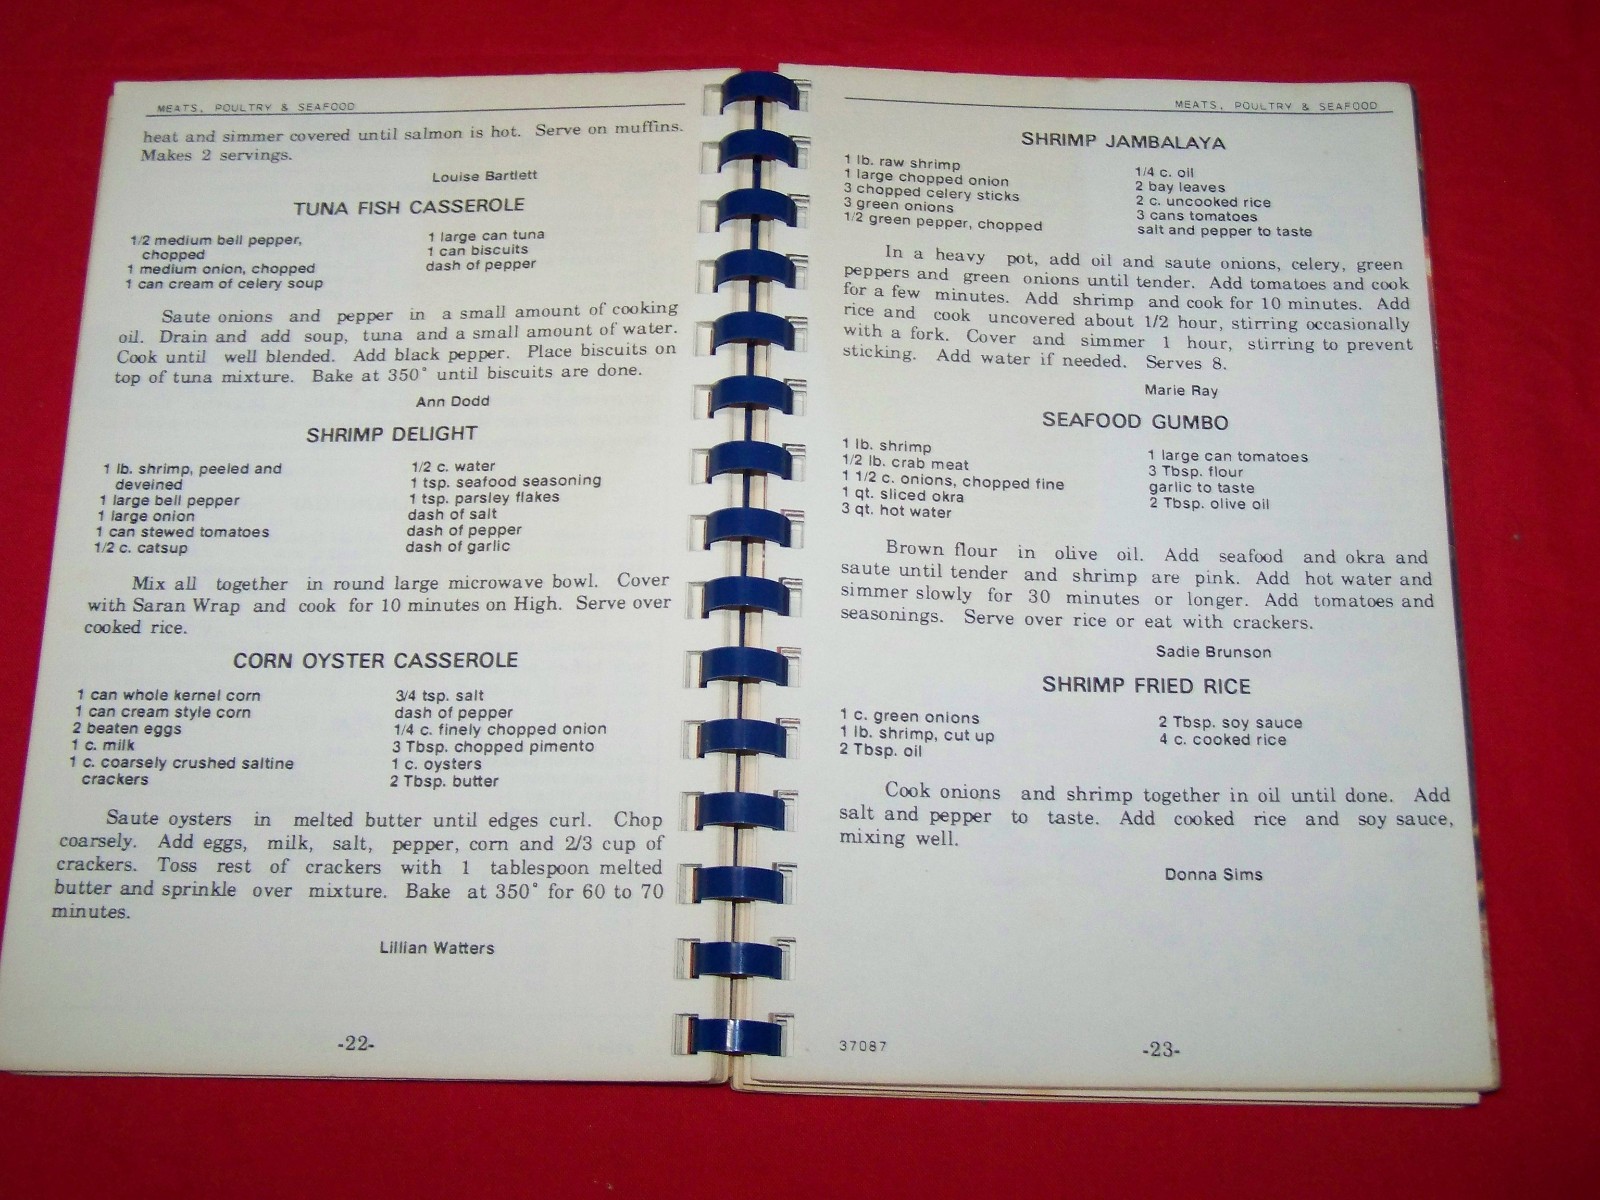 MEATS, POULTRY & SEAFOOD
heat and simmer covered until salmon is hot. Serve on muffins.
Makes 2 servings.
Louise Bartlett
TUNA FISH CASSEROLE
1/2 medium bell pepper,
chopped
1 medium onion, chopped
1 can cream of celery soup
1 large can tuna
1 can biscuits
dash of pepper
Saute onions and pepper in a small amount of cooking
oil. Drain and add soup, tuna and a small amount of water.
Cook until well blended. Add black pepper. Place biscuits on
top of tuna mixture. Bake at 350° until biscuits are done.
Ann Dodd
SHRIMP DELIGHT
1 lb. shrimp, peeled and
deveined
1 large bell pepper
1 large onion
1 can stewed tomatoes
1/2 c. catsup
1/2 c. water
1 tsp. seafood seasoning
1 tsp. parsley flakes
dash of salt
dash of pepper
dash of garlic
Mix all together in round large microwave bowl. Cover
with Saran Wrap and cook for 10 minutes on High. Serve over
cooked rice.
CORN OYSTER CASSEROLE
1 can whole kernel corn
1 can cream style corn
2 beaten eggs
1 c. milk
1 c. coarsely crushed saltine
crackers
3/4 tsp. salt
dash of pepper
1/4 c. finely chopped onion
3 Tbsp. chopped pimento
1 c. oysters
2 Tbsp. butter
Saute oysters in melted butter until edges curl. Chop
coarsely. Add eggs, milk, salt, pepper, corn and 2/3 cup of
crackers. Toss rest of crackers with 1 tablespoon melted
butter and sprinkle over mixture. Bake at 350° for 60 to 70
minutes.
Lillian Watters
-22-
MEATS, POULTRY & SEAFOOD
SHRIMP JAMBALAYA
1 lb. raw shrimp
1 large chopped onion
3 chopped celery sticks
3 green onions
1/2 green pepper, chopped
1/4 c. oil
2 bay leaves
2 c. uncooked rice
3 cans tomatoes
salt and pepper to taste
In a heavy pot, add oil and saute onions, celery, green
peppers and green onions until tender. Add tomatoes and cook
for a few minutes. Add shrimp and cook for 10 minutes. Add
rice and cook uncovered about 1/2 hour, stirring occasionally
with a fork. Cover and simmer 1 hour, stirring to prevent
sticking. Add water if needed. Serves 8.
Marie Ray
SEAFOOD GUMBO
1 lb. shrimp
1/2 lb. crab meat
1 1/2 c. onions, chopped fine
1 qt. sliced okra
3 qt. hot water
1 large can tomatoes
3 Tbsp. flour
garlic to taste
2 Tbsp. olive oil
Brown flour in olive oil. Add seafood and okra and
saute until tender and shrimp are pink. Add hot water and
simmer slowly for 30 minutes or longer. Add tomatoes and
seasonings. Serve over rice or eat with crackers.
Sadie Brunson
SHRIMP FRIED RICE
1 c. green onions
1 lb. shrimp, cut up
2 Tbsp. oil
2 Tbsp. soy sauce
4 c. cooked rice
Cook onions and shrimp together in oil until done. Add
salt and pepper to taste. Add cooked rice and soy sauce,
mixing well.
Donna Sims
37087
-23-